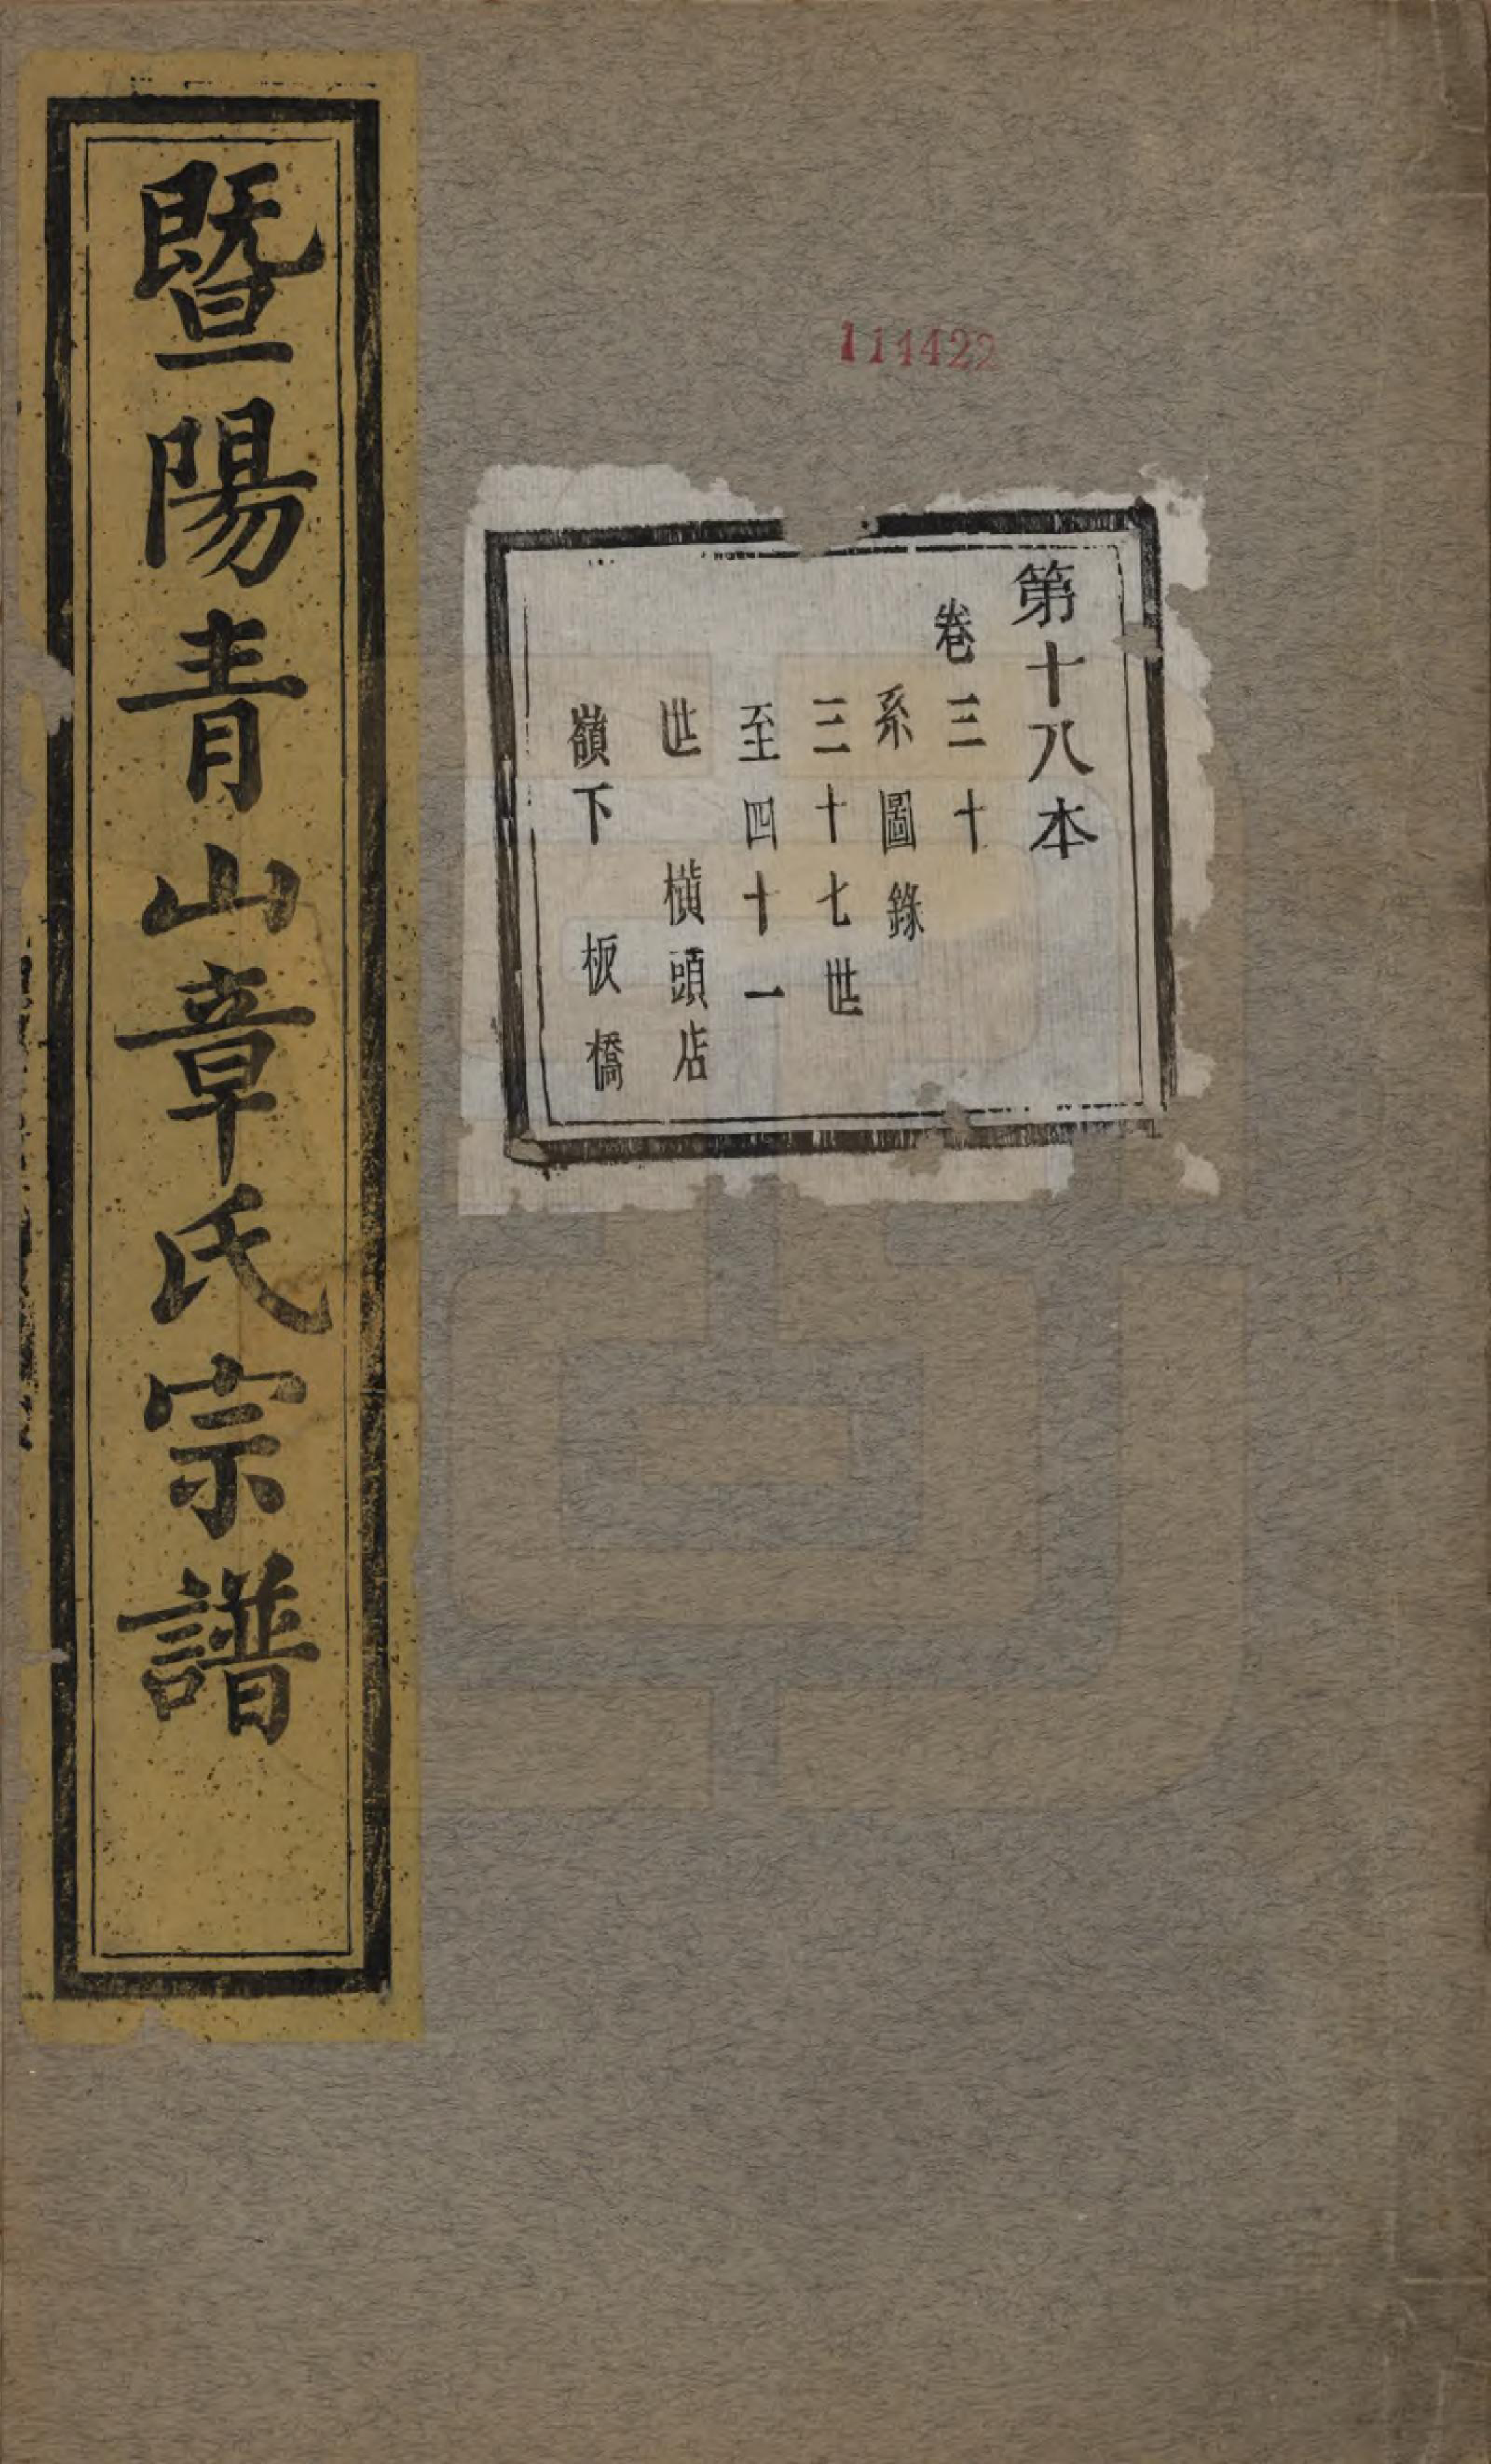 暨陽青山章氏宗譜
114422
第十八本
卷三十
系圖錄
三十七世
至四十一
世 橫頭店
嶺下 板橋